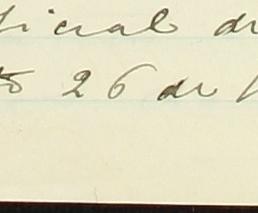 ficial de
to 26 de